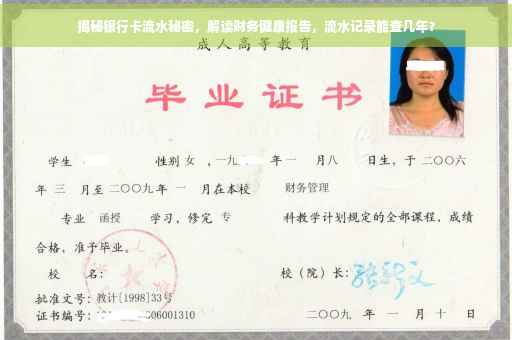 揭秘银行卡流水秘密，解读财务健康报告，流水记录能查几年？
成人高等教育
毕业证书
学生 性别 女 ，一九 年 一 月 八 日生，于 二〇〇六
年 三 月至 二〇〇九 年 一 月在本校 财务管理
专业 函授 学习，修完 专 科教学计划规定的全部课程，成绩
合格，准予毕业。
校 名： 校（院）长：
批准文号：教计[1998]33号
证书编号： 06001310 二〇〇九 年 一 月 十 日